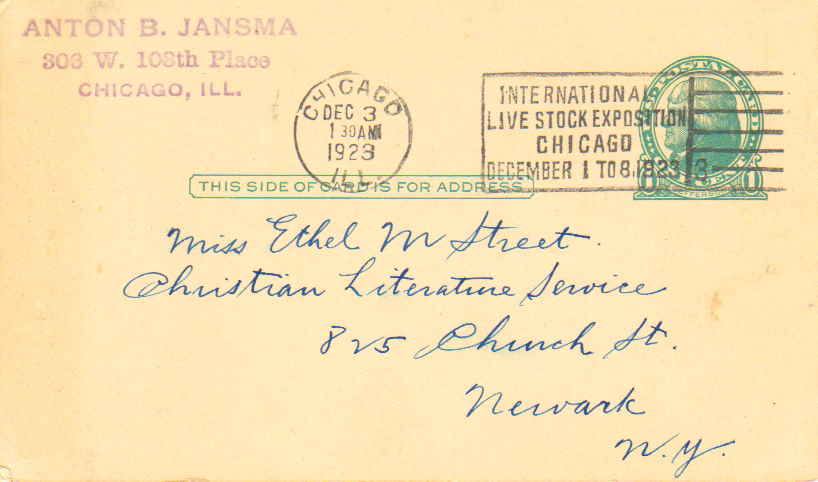 ANTON B. JANSMA
303 W. 108th Place
CHICAGO, ILL.
CHICAGO
DEC 3
1 30 AM
1923
ILL.
INTERNATIONAL
LIVE STOCK EXPOSITION
CHICAGO
DECEMBER 1 TO 8, 1923
POSTAL CARD
JEFFERSON
THIS SIDE OF CARD IS FOR ADDRESS
Miss Ethel M Street.
Christian Literature Service
825 Church St.
Newark
N.Y.